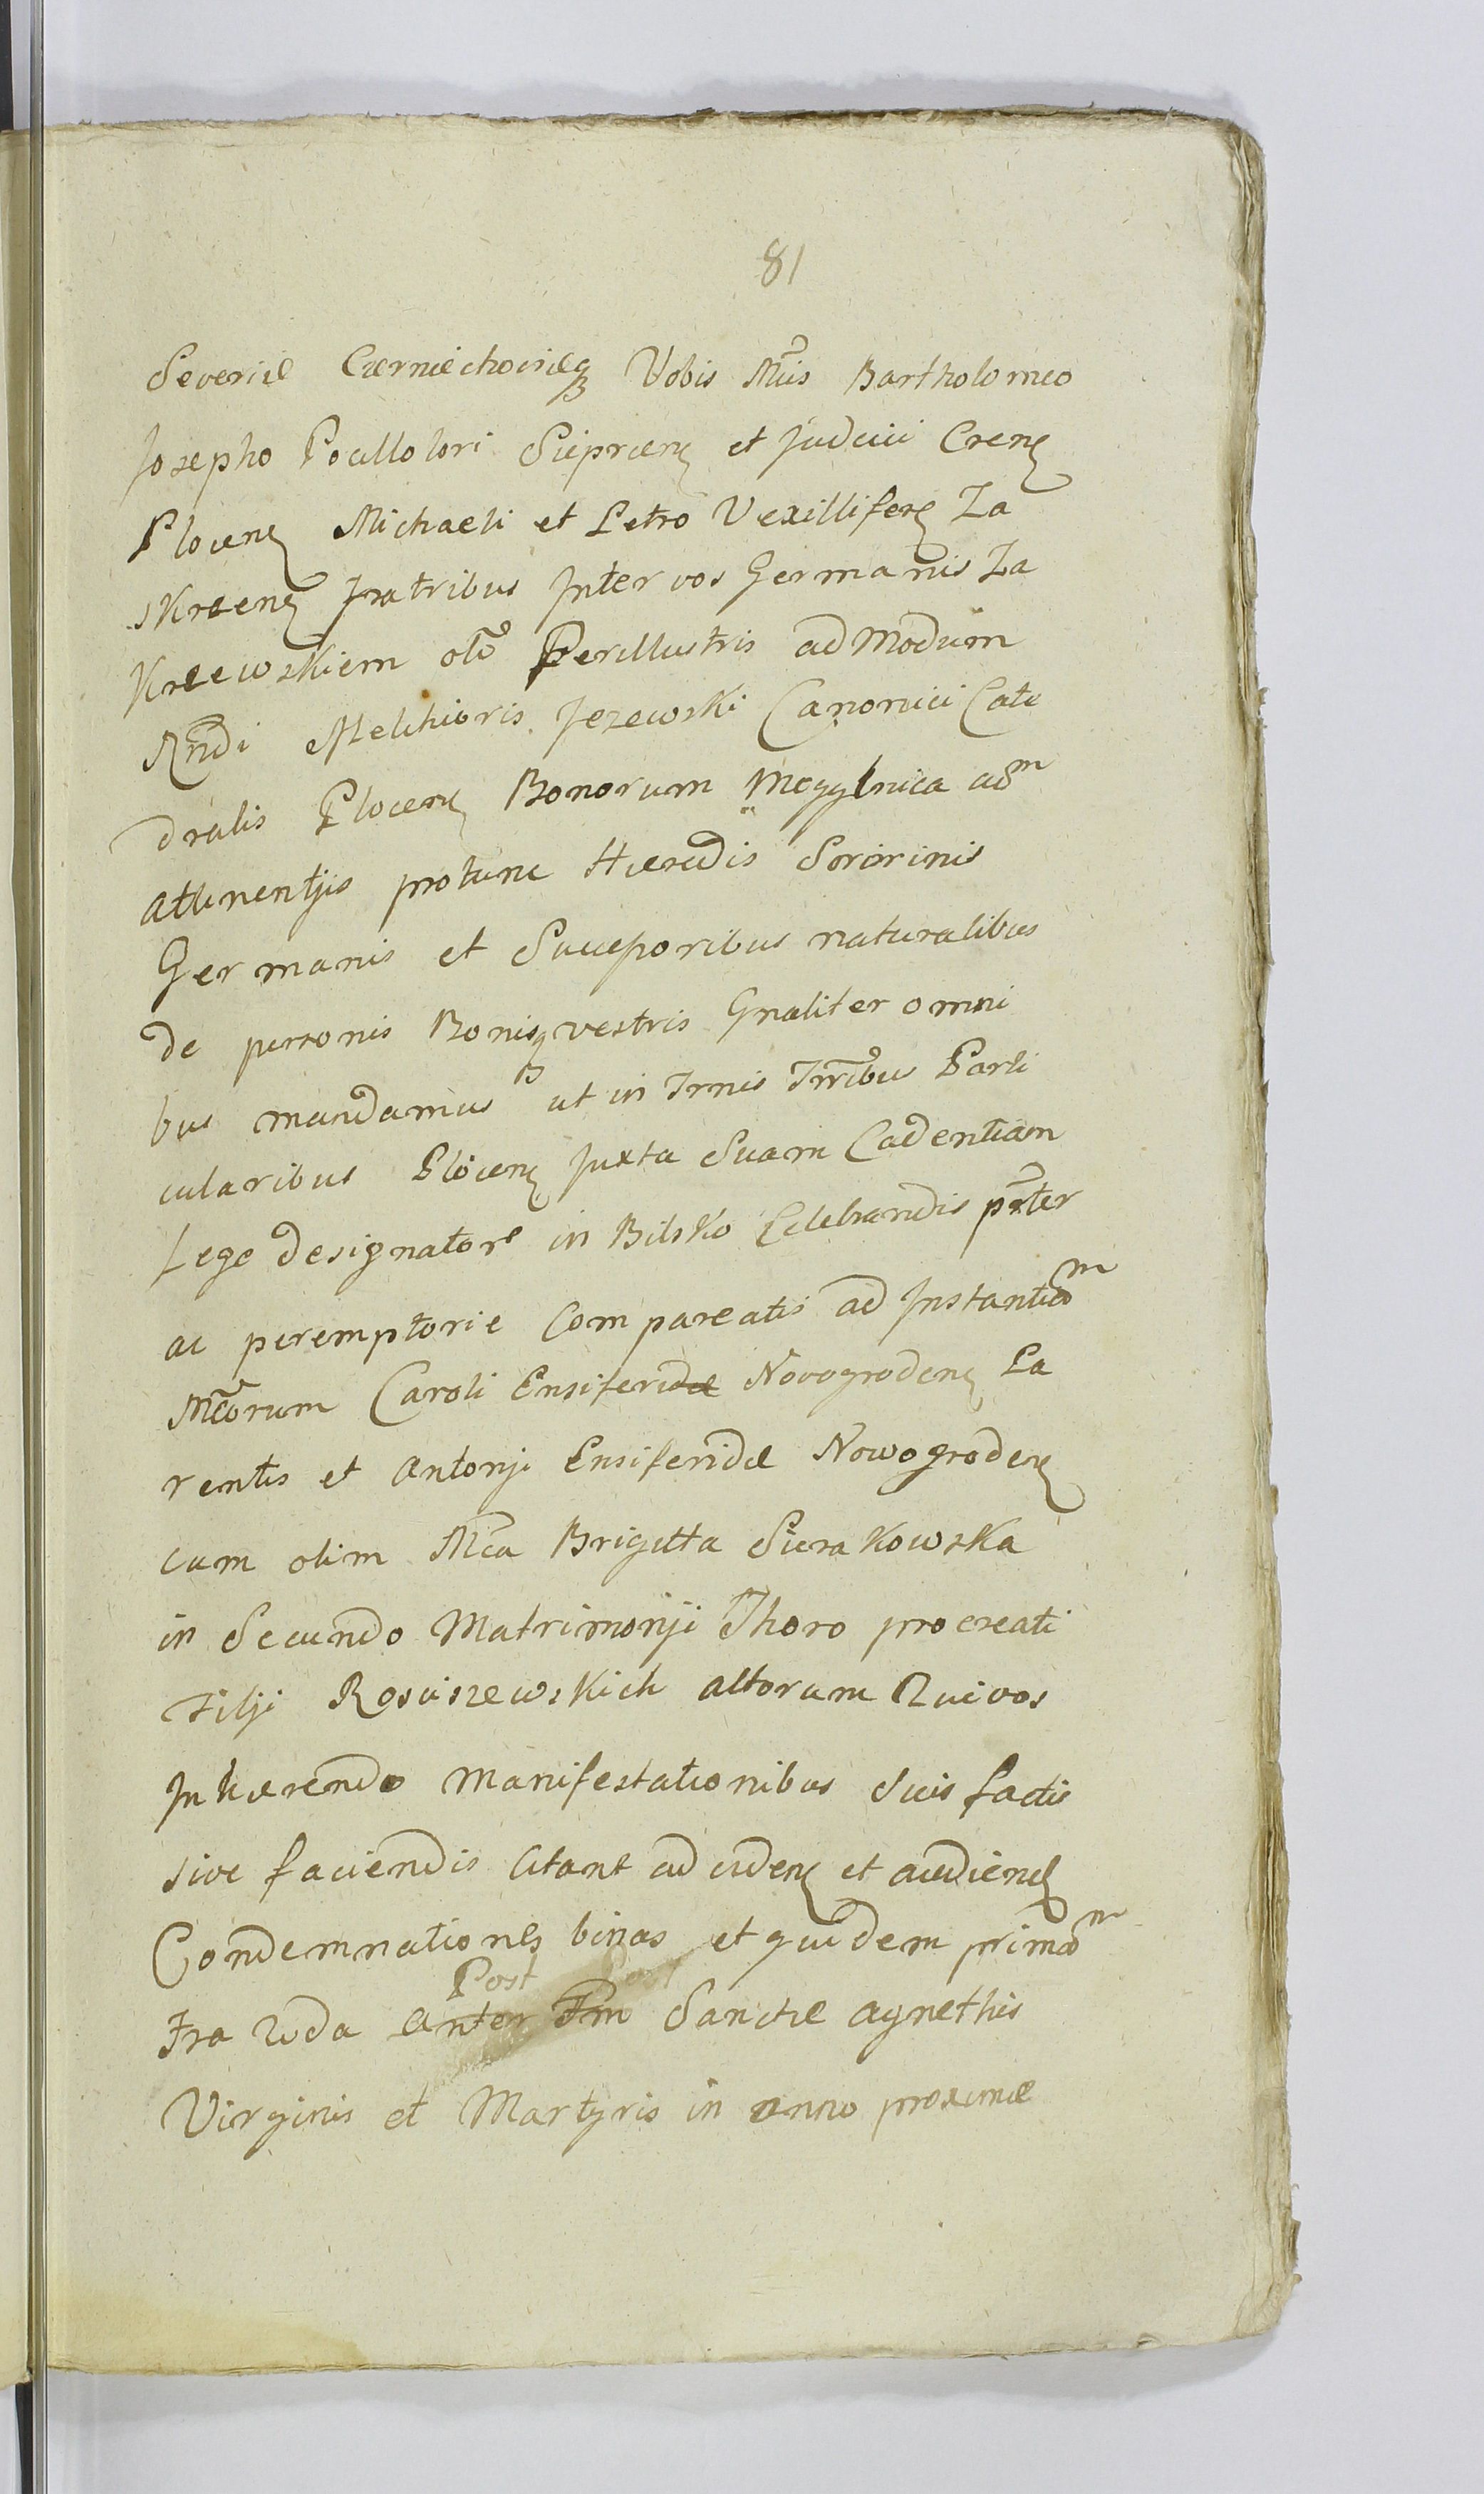 81
Severiæ Czerniechoviæq Vobis Mcis Bartholomeo
Josepho Pocillatori Sieprcens et Judici Crens
Plocens Michaeli et Petro Vexillifers Za
skrzens Fratribus Inter vos Germanis Za
Krzewskiem olim Perillustris ad Modum
Rndi Melchioris Jezewski Canonici Cate
dralis Plocens Bonorum Mogylnica cum
attinentijs protunc Hæredis Sororinis
Germanis et Successoribus naturalibus
de personis Bonisq vestris Gnaliter omni
bus mandamus ut in Trnis Trribus Parti
cularibus Plocens Juxta Suam Cadentiam
Lege designatore in Bilsko Celebrandis prter
ac peremptorie Compareatis ad Instantiam
Mcorum Caroli Ensiferidæ Novogrodens Pa
rentis et Antonji Ensiferidæ Nowogrodens
cum olim Mca Brigitta Sierakowska
in Secundo Matrimonji Thoro procreati
Filji Rosciszewskich Actorum Qui vos
Inhærendo Manifestationibus Suis factis
sive faciendis Citant ad videns et audiends
Condemnationes binas et quidem primam
Post
Fra 2da Anter Fm Sanctæ Agnethis
Virginis et Martyris in Anno proximæ